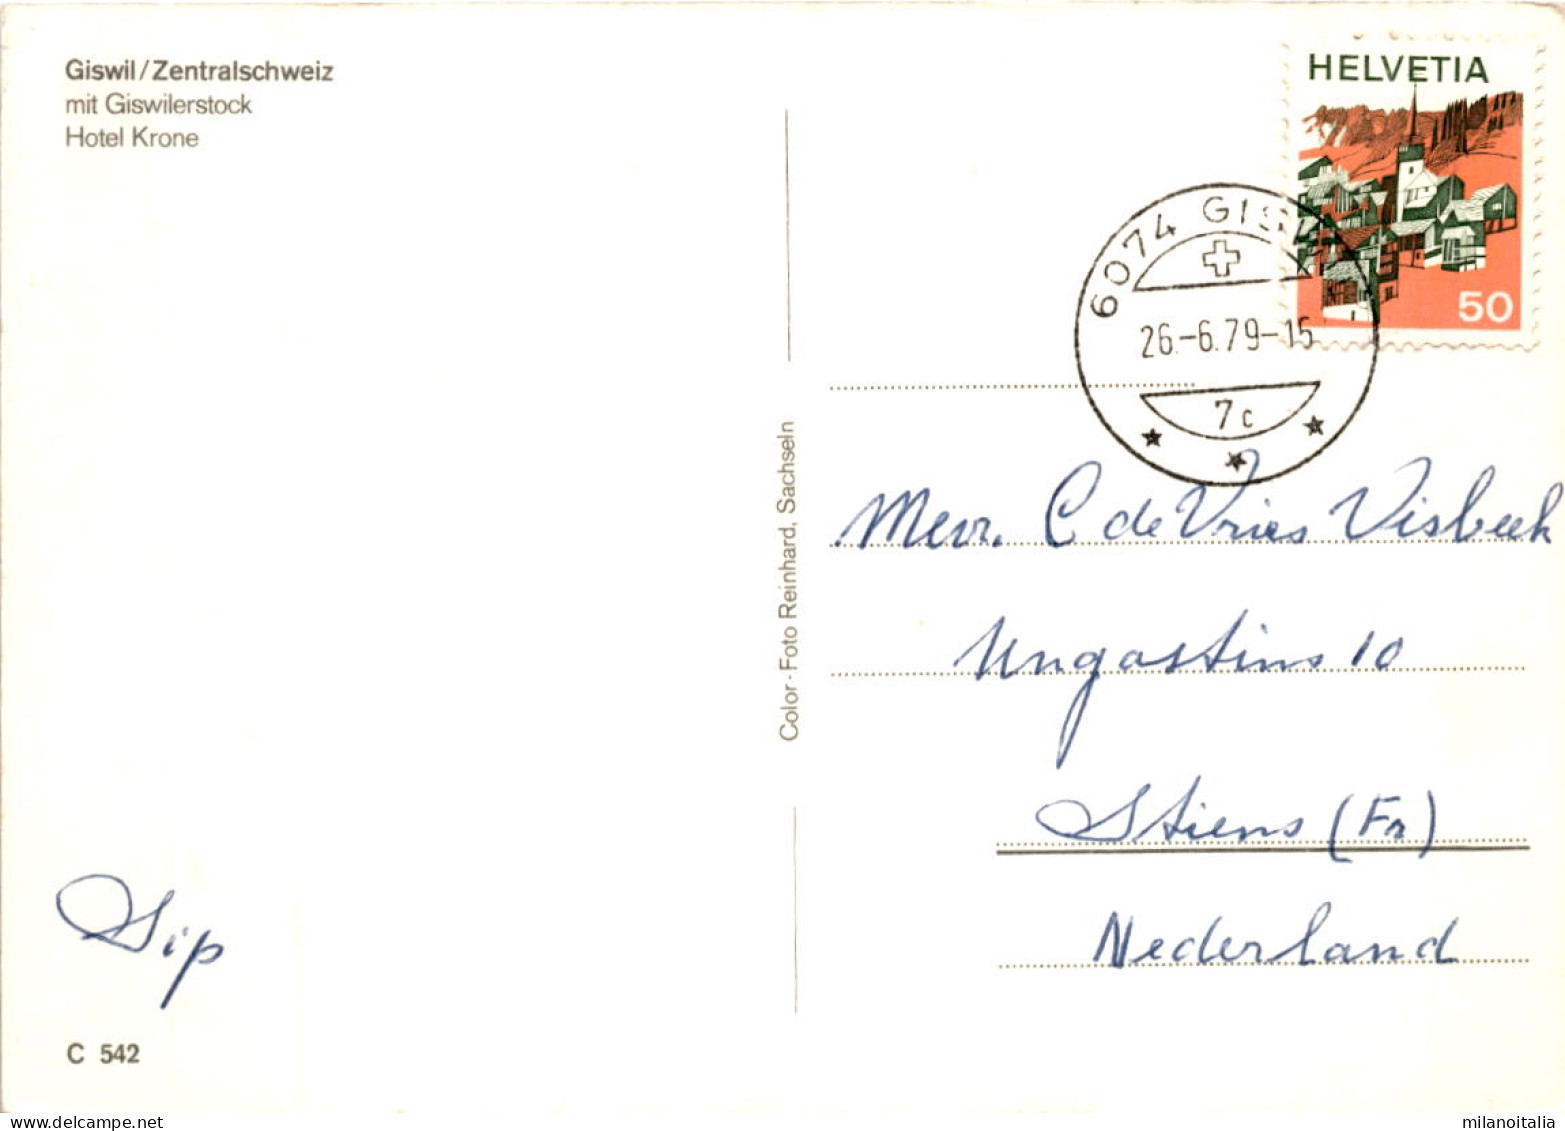 Giswil/Zentralschweiz
mit Giswilerstock
Hotel Krone
HELVETIA
50
6074 GISW
26.-6.79-15
7c
Color - Foto Reinhard, Sachseln
Mevr. C de Vries Visbeek
Ungastins 10
Stiens (Fr)
Nederland
Sip
C 542
milanoitalia